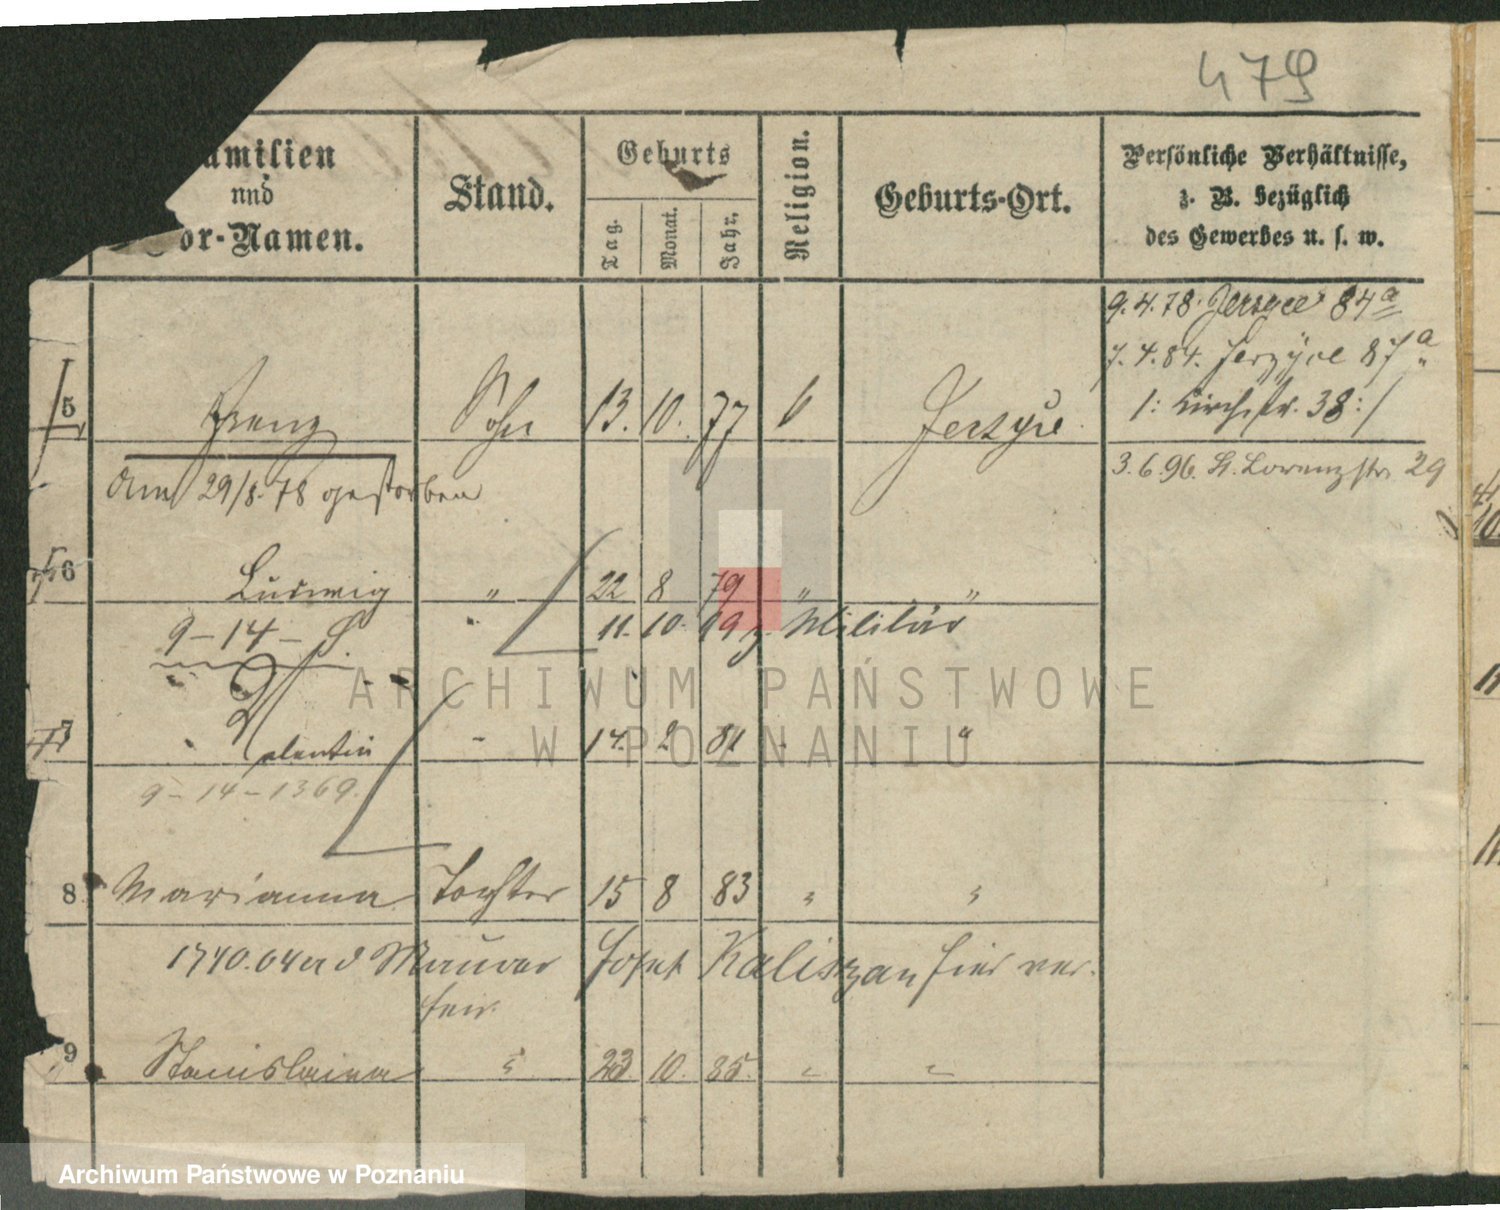 479
amilien
und
or-Namen.
Stand.
Geburts
Tag.
Monat.
Jahr.
Religion.
Geburts-Ort.
Persönliche Verhältnisse,
z. B. bezüglich
des Gewerbes u. s. w.
9.4.78. 84a
7.4.84. Jerzyce 87a
5 Franz Sohn 13. 10. 77 Jerzyce
1: Kirchstr. 38:/
am 29/8.78 gestorben
3.6.96. St. Lorenzstr. 29
6 Ludwig " 22 8 79 " "
9-14- S. " 11. 10. 99 z. Militär
7 Valentin 14. 2 81 "
9-14-1369.
8 Marianna Tochter 15 8 83 " "
1740.04 Maurer Josef Kaliszan hier ver-
9 Stanislawa " 23 10. 85. " "
ARCHIWUM PAŃSTWOWE
W POZNANIU
Archiwum Państwowe w Poznaniu